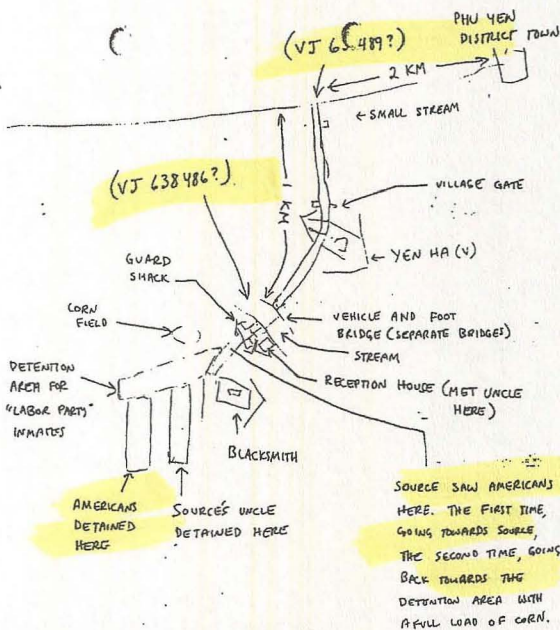 PHU YEN
DISTRICT TOWN
2 KM
← SMALL STREAM
(VJ 638486?)
1 KM
VILLAGE GATE
YEN HA (V)
GUARD
SHACK
CORN
FIELD
VEHICLE AND FOOT
BRIDGE (SEPARATE BRIDGES)
STREAM
RECEPTION HOUSE (MET UNCLE
HERE)
DETENTION
AREA FOR
"LABOR PARTY"
INMATES
BLACKSMITH
AMERICANS
DETAINED
HERE
SOURCE'S UNCLE
DETAINED HERE
SOURCE SAW AMERICANS
HERE. THE FIRST TIME,
GOING TOWARDS SOURCE,
THE SECOND TIME, GOING
BACK TOWARDS THE
DETENTION AREA WITH
A FULL LOAD OF CORN.